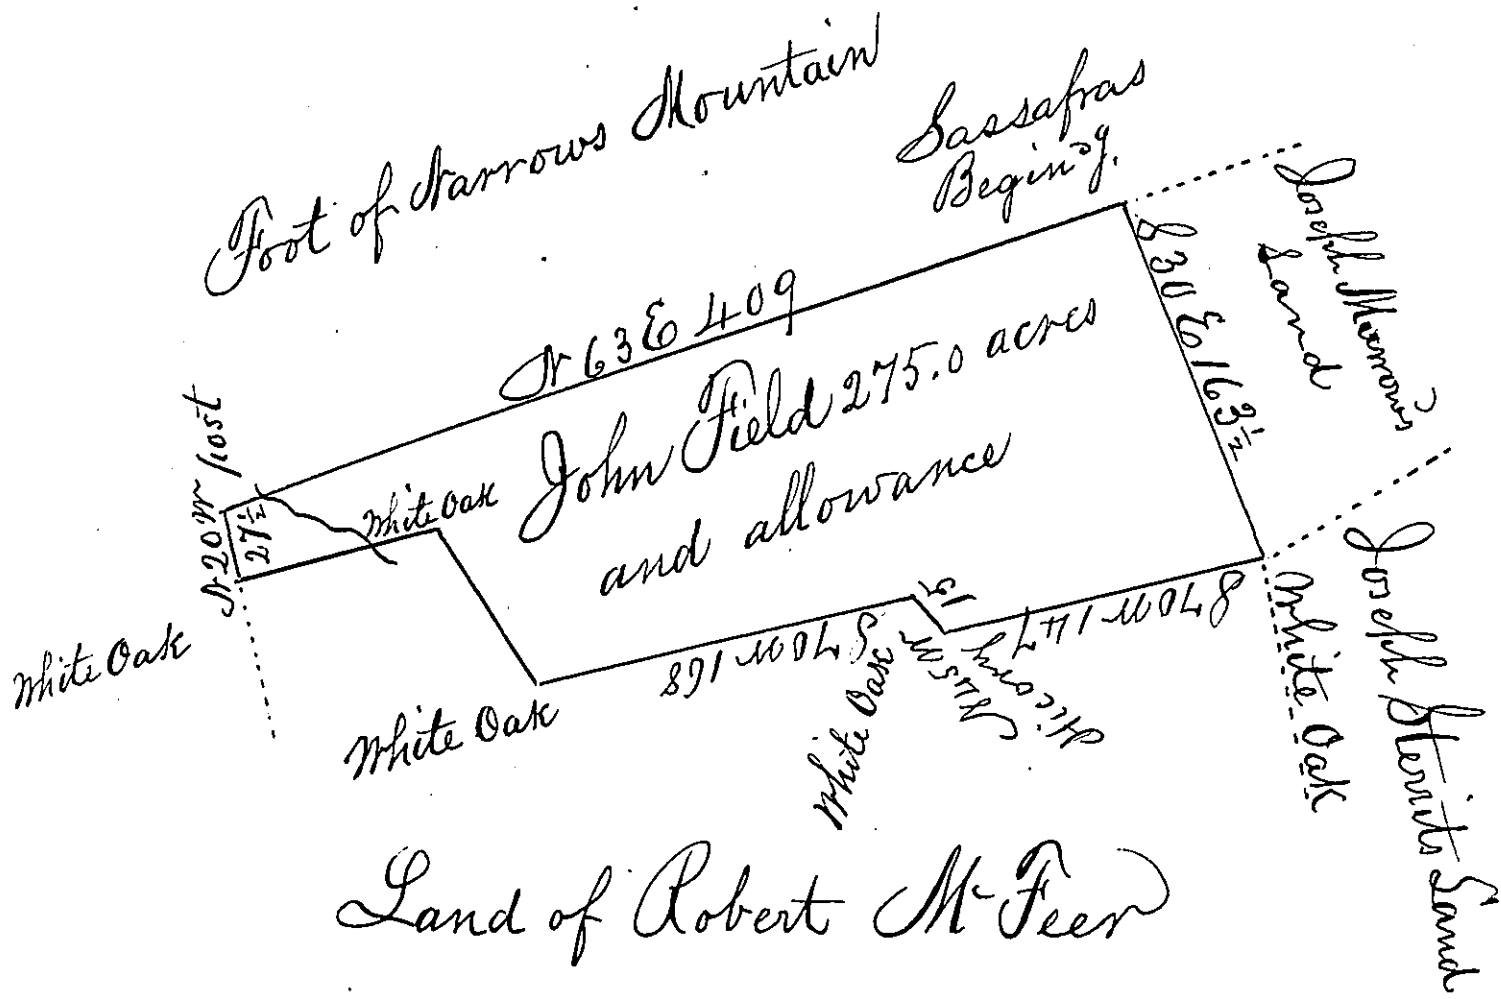 Foot of Narrows Mountain
Sassafras
Begin'g.
Joseph Morrow's
Land
S 30 E 163½
N 63 E 409
John Field 275.0 acres
and allowance
post
N 20 W
27½
White Oak
White Oak
White Oak
S 70 W 168
White Oak
N 45 W
15
Hicory
S 70 W 147
White Oak
Joseph Sterrits Land
Land of Robert McFeer